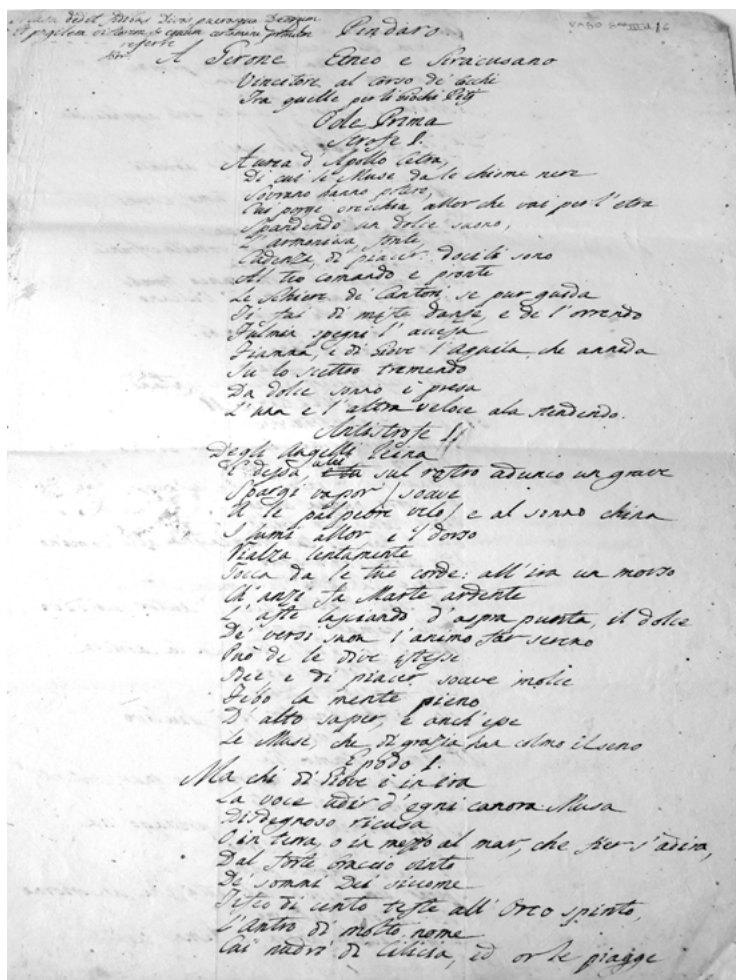 Musa dedit fidibus Divos puerosque Deorum
Et pugilem victorem et equum certamine primum
referre
Pindaro
A Gerone Etneo e Siracusano
Vincitore al corso de' Cocchi
Tra quelle per li Giochi Pitj
Ode Prima
Strofe I.
Aurea d'Apollo Cetra,
Di cui le Muse da le chiome nere
Sovrano hanno potere,
Cui porge orecchia, allor che vai per l'etra
Spandendo un dolce suono,
L'armoniosa fonte
Cadenza, di piacer: docili sono
Al tuo comando e pronte
Le Schiere de' Cantori, se pur guida
Ti fai di miste danze, e de l'orrendo
Fulmin spegni l'accesa
Fiamma, e di Giove l'Aquila che annida
Su lo scettro tremendo
Da dolce sonno è presa
L'una e l'altra veloce ala stendendo.
Antistrofe I.
Degli Augelli Reina
E dessa sul rostro adunco un grave
Spargi vapor (soave
A le palpebre velo) e al sonno china
I lumi allor e 'l dorso
Rialza lentamente
Tocca da le tue corde: all'ira un morso
Ch'anzi fa Marte ardente
L'aste lasciando d'aspra punta, il dolce
De' versi suon l'animo far sereno
Può de le Dive istesse
Dee e di piacer soave molce
Febo la mente pieno
D'alto saper, e anch'esse
Le Muse, che di grazia han colmo il seno
Epodo I.
Ma chi di Giove è in ira
La voce udir d'ogni canora Musa
Disdegnoso ricusa
O in terra, o in mezzo al mar, che fier s'adira,
Dal forte braccio vinto
De' sommi Dei siccome
Tifeo di cento teste all'Orco spinto,
L'Antro di molto nome
Cui nudrì di Cilicia, ed or le piagge